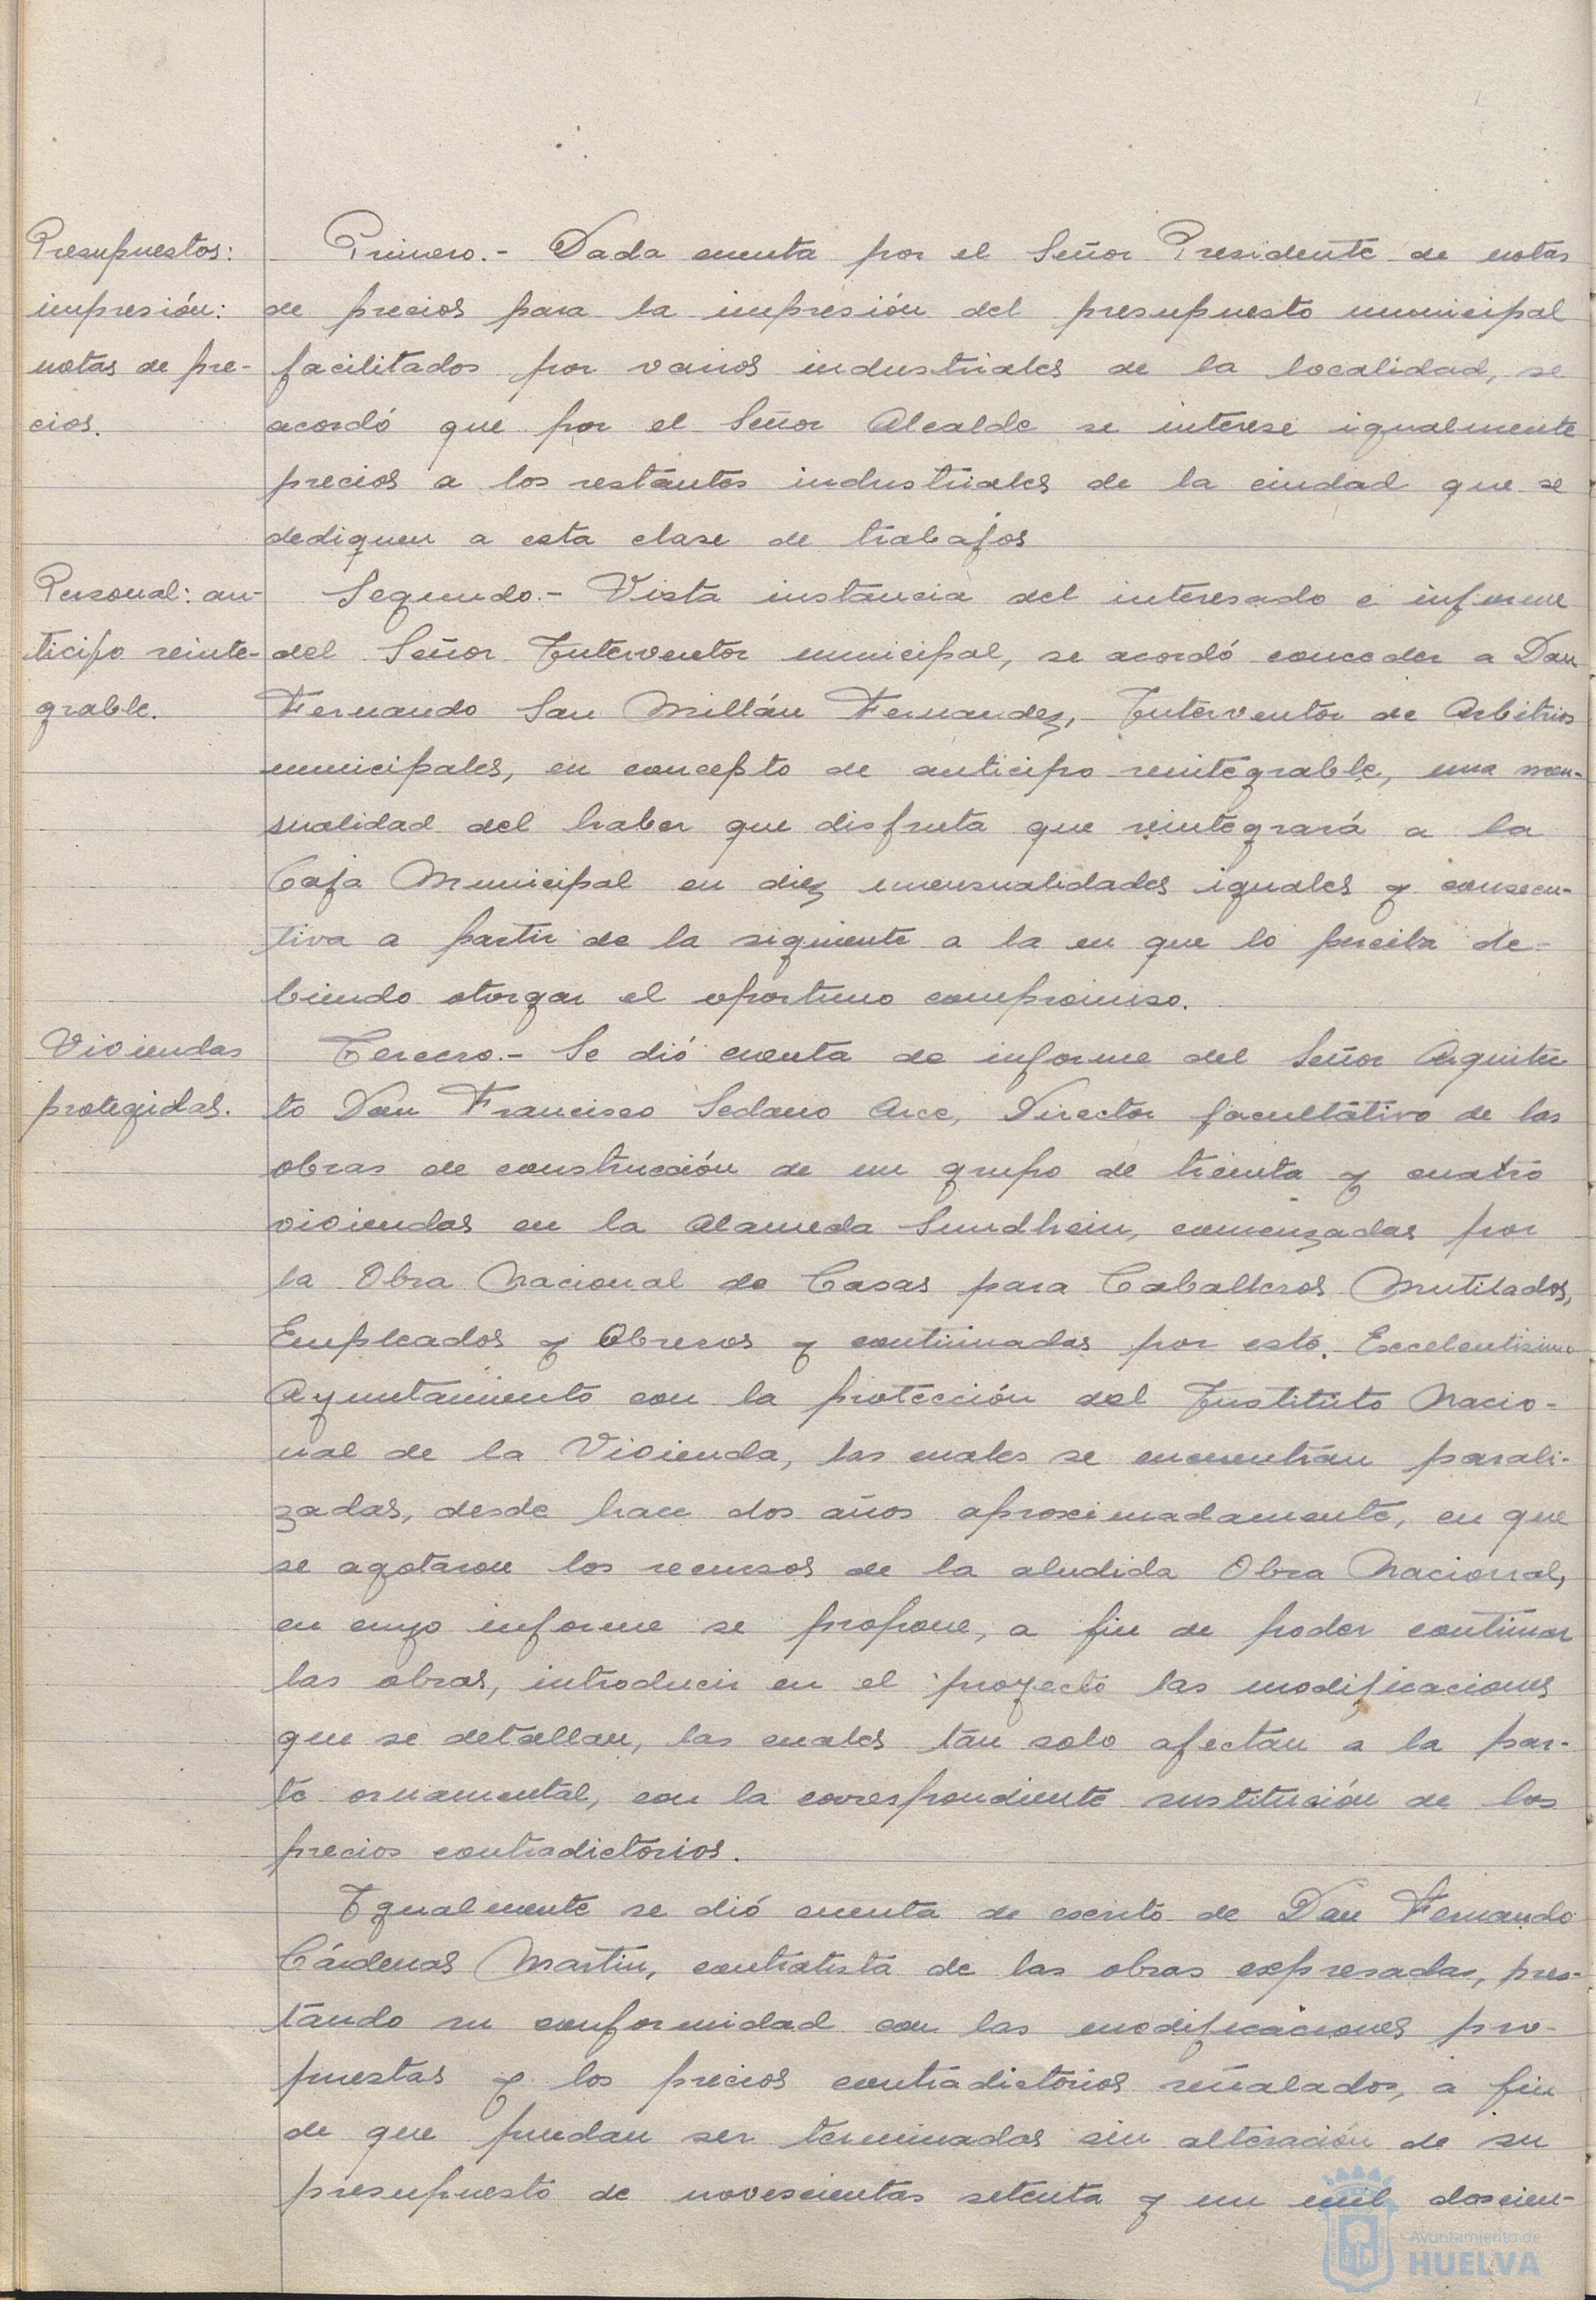 Presupuestos:
impresión:
notas de pre-
cios.
Primero.- Dada cuenta por el Señor Presidente de notas
de precios para la impresión del presupuesto municipal
facilitados por varios industriales de la localidad, se
acordó que por el Señor Alcalde se interese igualmente
precios a los restantes industriales de la ciudad que se
dediquen a esta clase de trabajos
Personal: an-
ticipo reinte-
grable.
Segundo.- Vista instancia del interesado e informe
del Señor Interventor municipal, se acordó conceder a Don
Fernando San Millán Fernandez, Interventor de Arbitrios
municipales, en concepto de anticipo reintegrable, una men-
sualidad del haber que disfruta que reintegrará a la
Caja Municipal en diez mensualidades iguales y consecu-
tiva a partir de la siguiente a la en que lo perciba de-
biendo otorgar el oportuno compromiso.
Viviendas
protegidas.
Tercero.- Se dió cuenta de informe del Señor Arquitec
to Don Francisco Sedano Arce, Director facultativo de las
obras de construcción de un grupo de treinta y cuatro
viviendas en la Alameda Sundhein, comenzadas por
la Obra Nacional de Casas para Caballeros Mutilados,
Empleados y Obreros y continuadas por este. Excelentisimo
Ayuntamiento con la protección del Instituto Nacio-
nal de la Vivienda, las cuales se encuentran parali-
zadas, desde hace dos años aproximadamente, en que
se agotaron los recursos de la aludida Obra Nacional,
en cuyo informe se propone, a fin de poder continuar
las obras, introducir en el proyecto las modificaciones
que se detallan, las cuales tan solo afectan a la par-
te ornamental, con la correspondiente sustitución de los
precios contradictorios.
Igualmente se dió cuenta de escrito de Don Fernando
Cárdenas Martin, contratista de las obras expresadas, pres-
tando su conformidad con las modificaciones pro-
puestas y los precios contradictorios señalados, a fin
de que puedan ser terminadas sin alteración de su
presupuesto de novescientas setenta y un mil doscien-
Ayuntamiento de
HUELVA